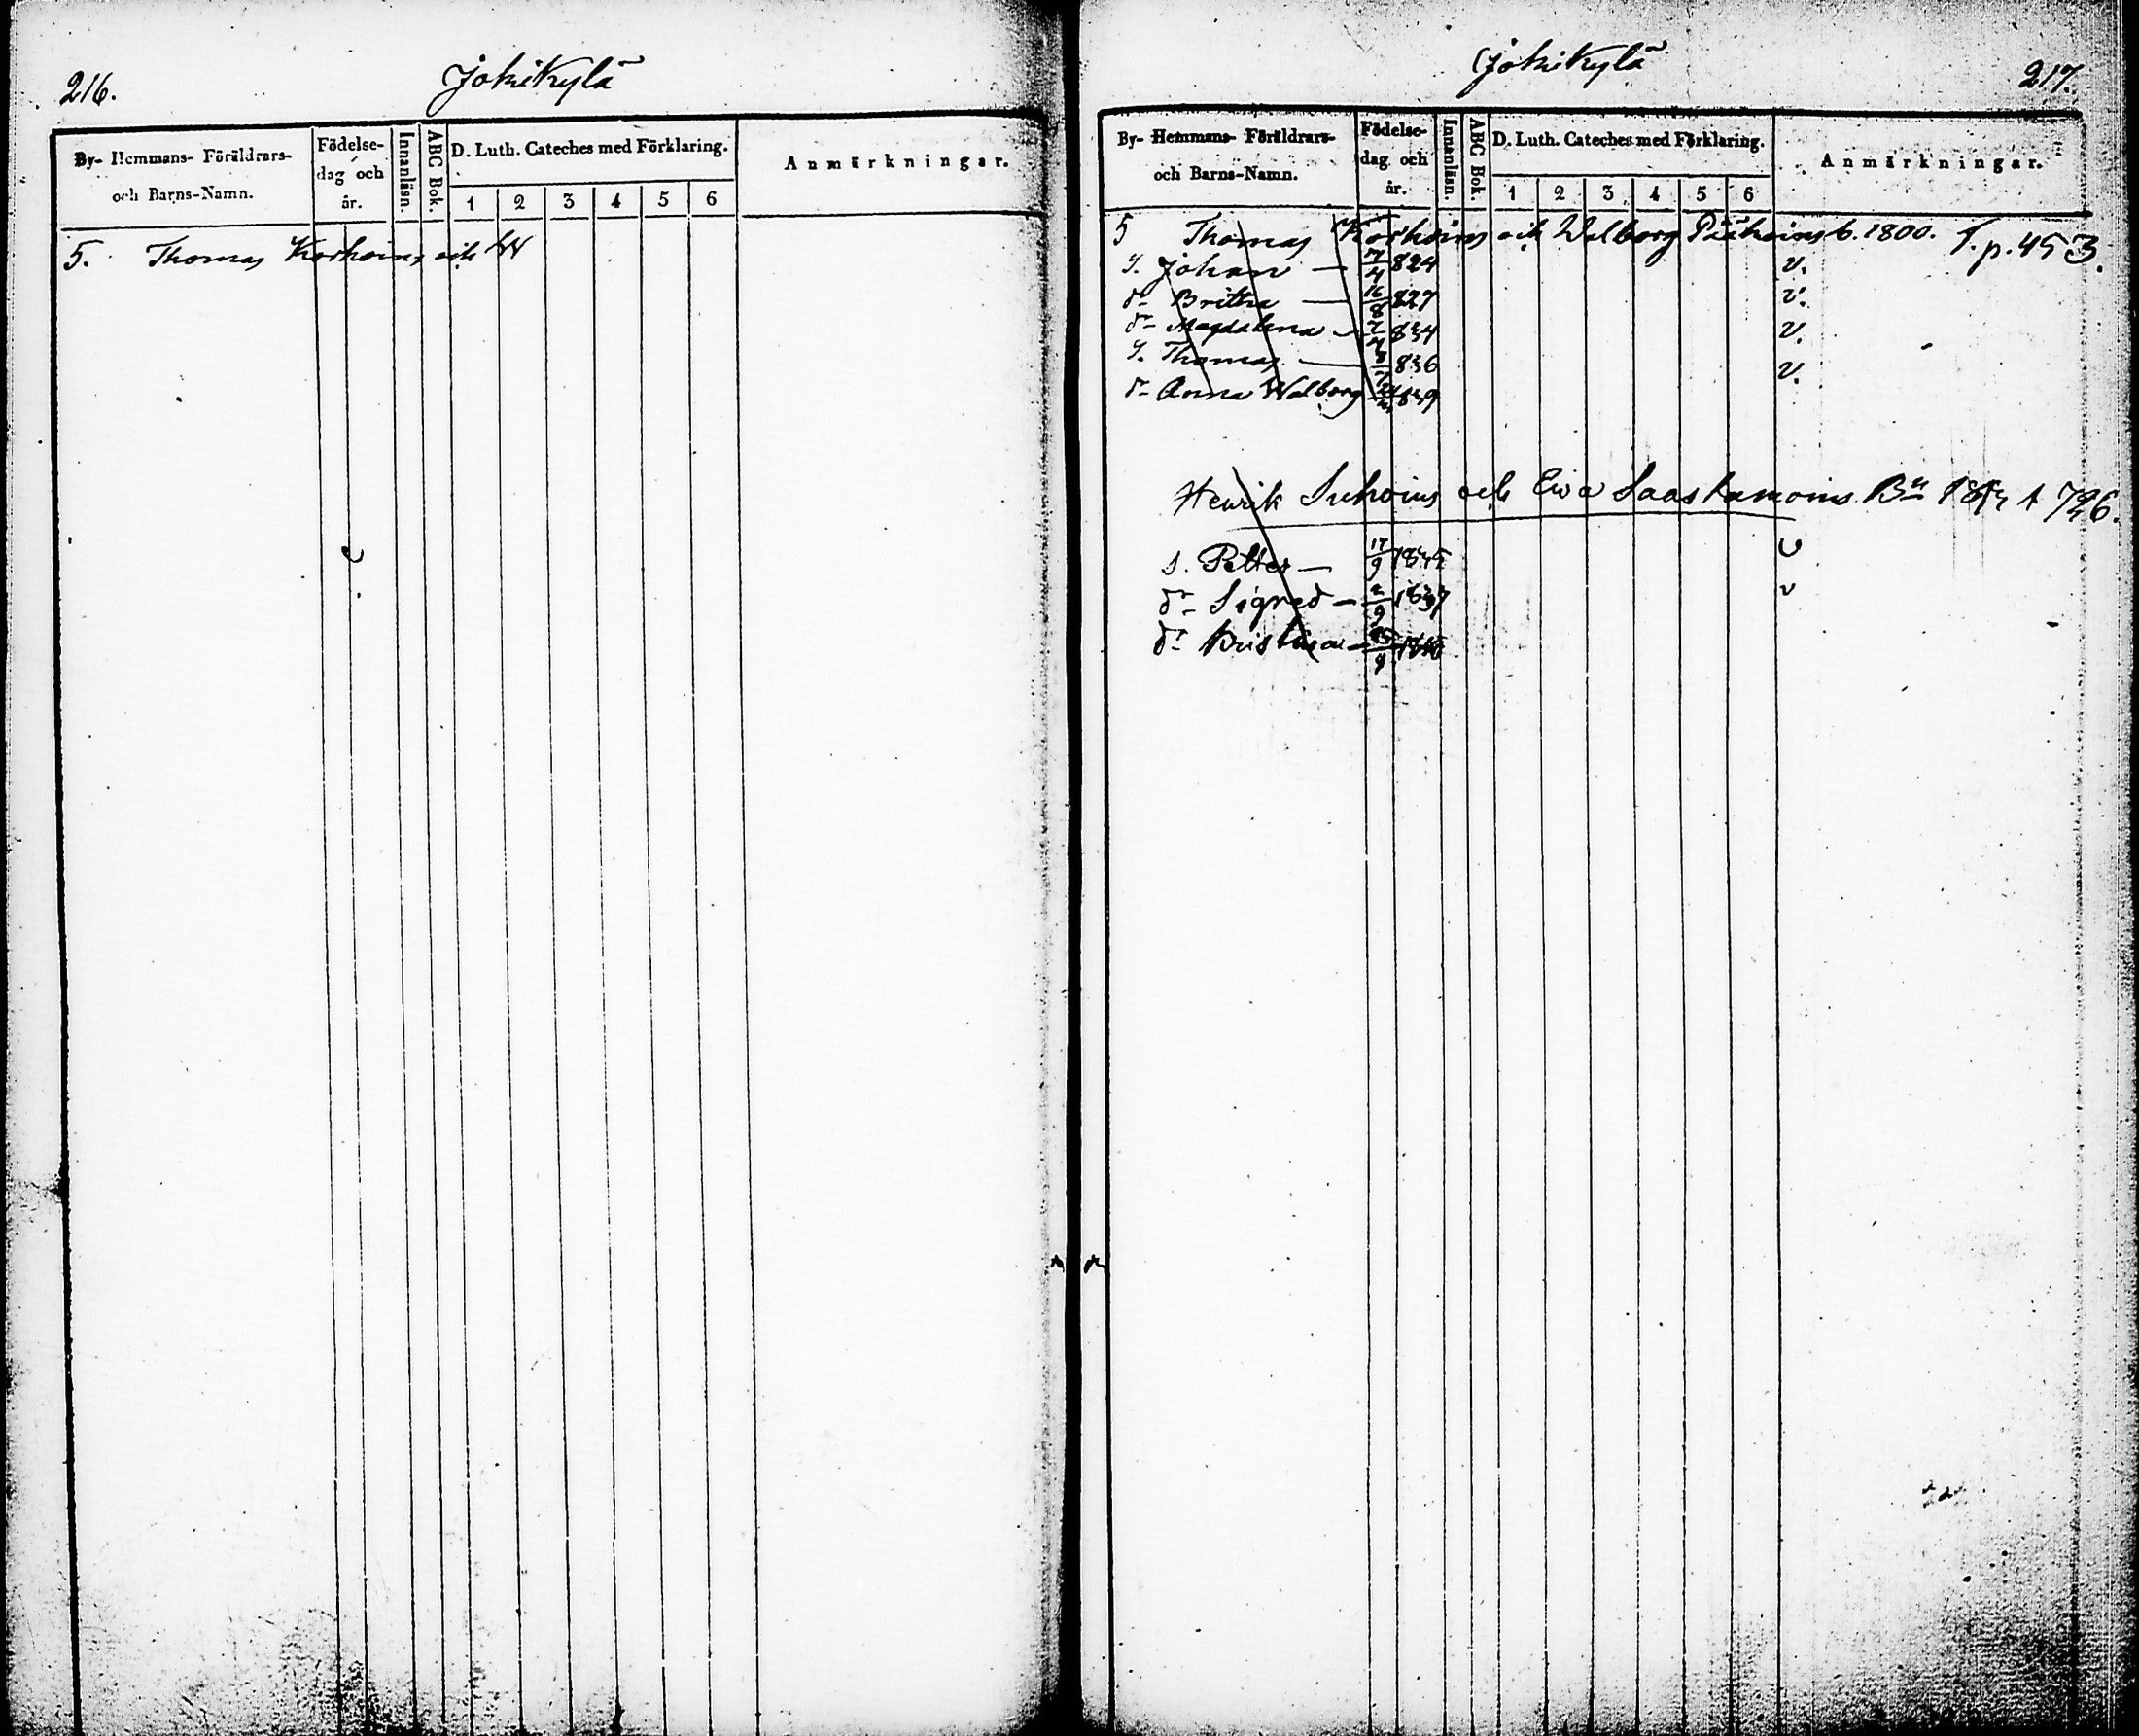 216.
Jokikylä
By- Hemmans- Föräldrars-
och Barns-Namn.
Födelse-
dag och
år.
Innanläsn.
ABC Bok.
D. Luth. Cateches med Förklaring.
1 2 3 4 5 6
Anmärkningar.
5. Thomas Korhoins och W
Jokikylä
217.
By- Hemmans- Föräldrars-
och Barns-Namn.
Födelse-
dag och
år.
Innanläsn.
ABC Bok.
D. Luth. Cateches med Förklaring.
1 2 3 4 5 6
Anmärkningar.
5 Thomas Korhoins och Walborg b. 1800. T. p. 453.
S. Johan — 824 v.
dr Britha — 16/8 827 v.
dr Magdalena — 834 v.
S. Thomas — 836 v.
dr Anna Walborg 839
Henrik Suhoins och Ewa Saastamoins 726.
s. Petter — 17/9 v
dr Sigred — 1837 v
dr Kristina —